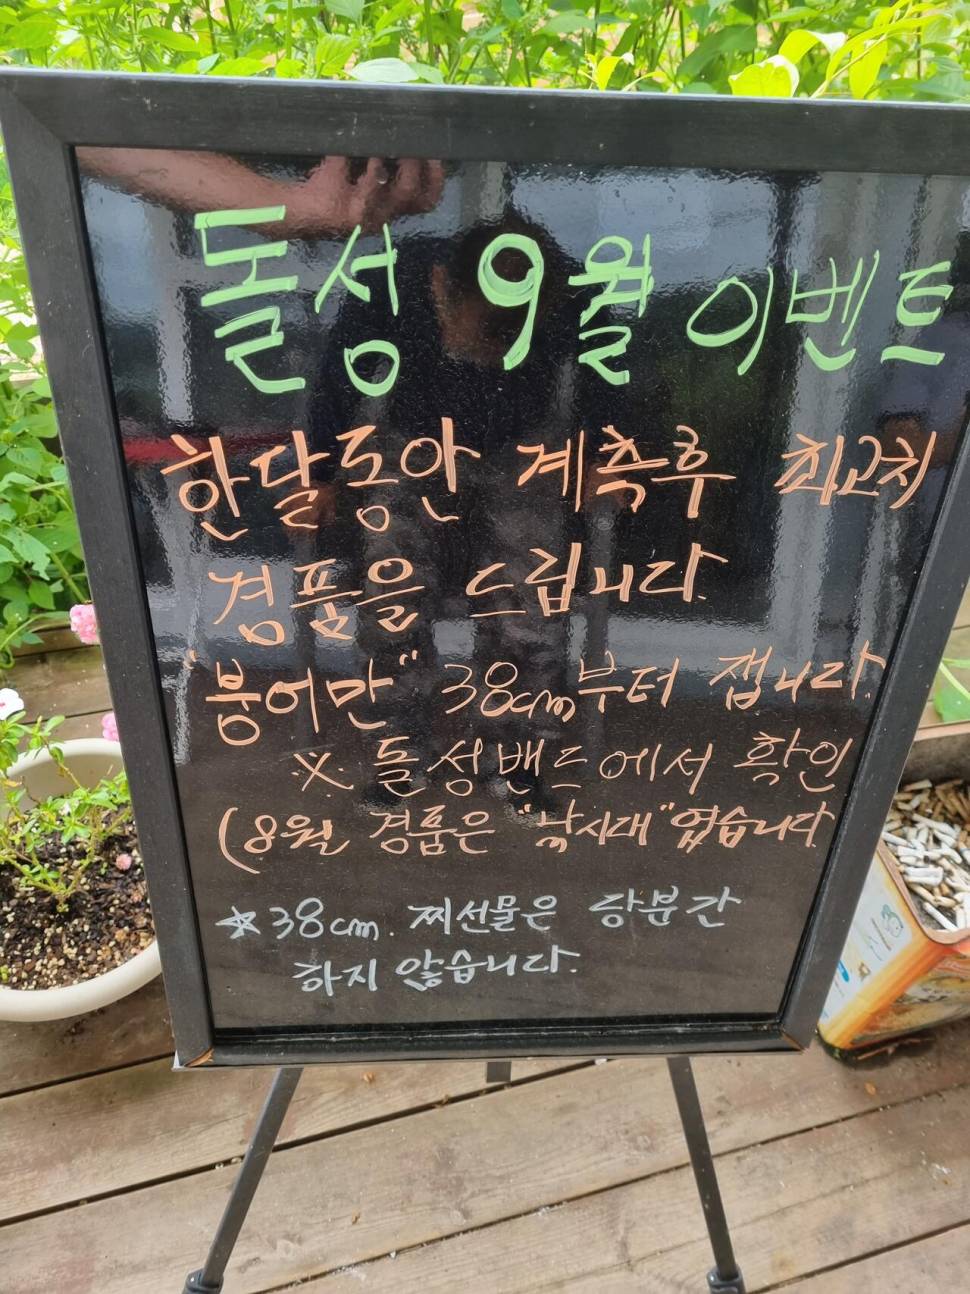 돌성 9월 이벤트
한달동안 계측후 최고치
경품을 드립니다.
"붕어만" 38cm부터 잽니다.
※ 돌성밴드에서 확인
(8월 경품은 "낚시대"였습니다
☆38cm. 찌선물은 당분간
하지 않습니다.